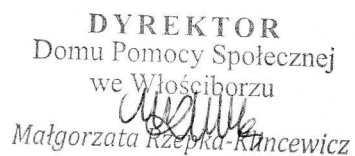 DYREKTOR
Domu Pomocy Społecznej
we Włościborzu
Małgorzata Rzepka-Kuncewicz